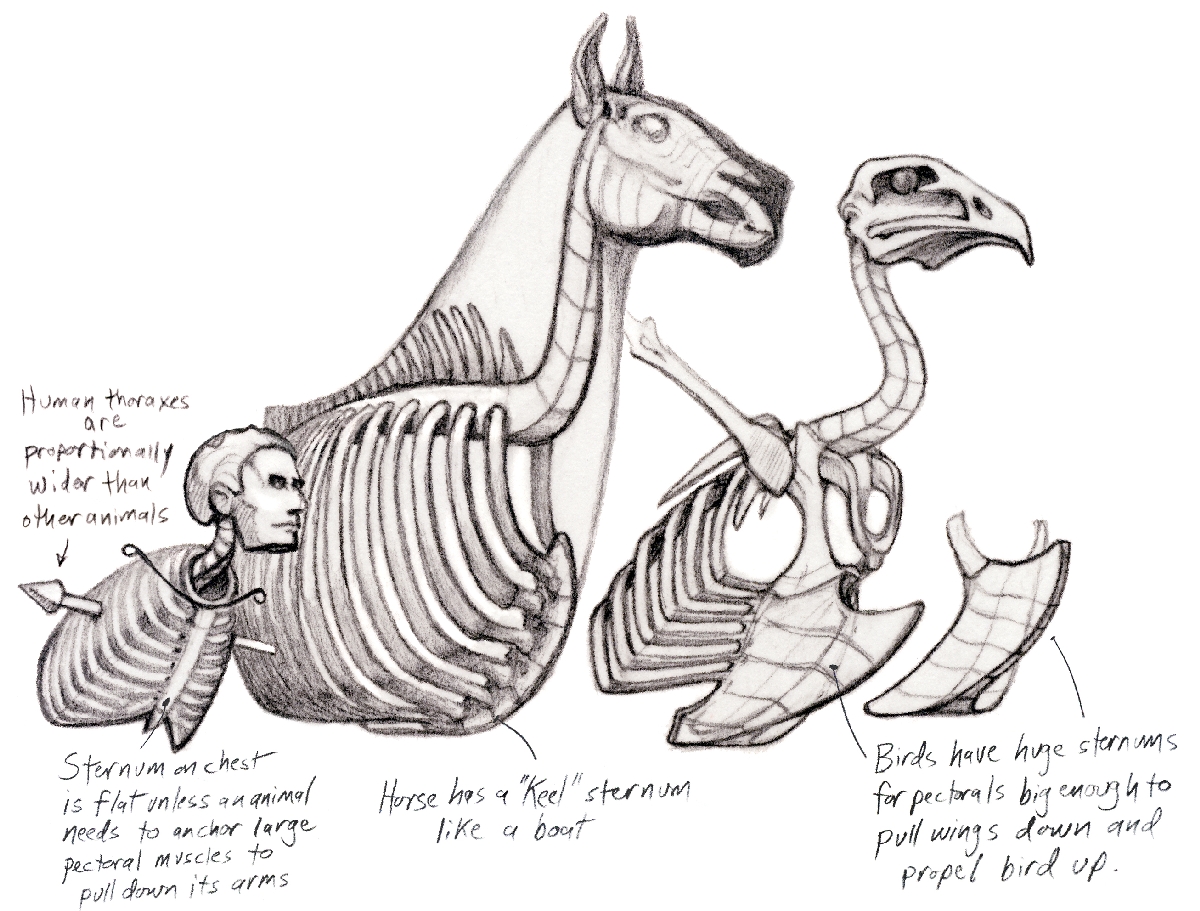 Human thoraxes
are
proportionally
wider than
other animals
Sternum on chest
is flat unless an animal
needs to anchor large
pectoral muscles to
pull down its arms
Horse has a "Keel" sternum
like a boat
Birds have huge sternums
for pectorals big enough to
pull wings down and
propel bird up.